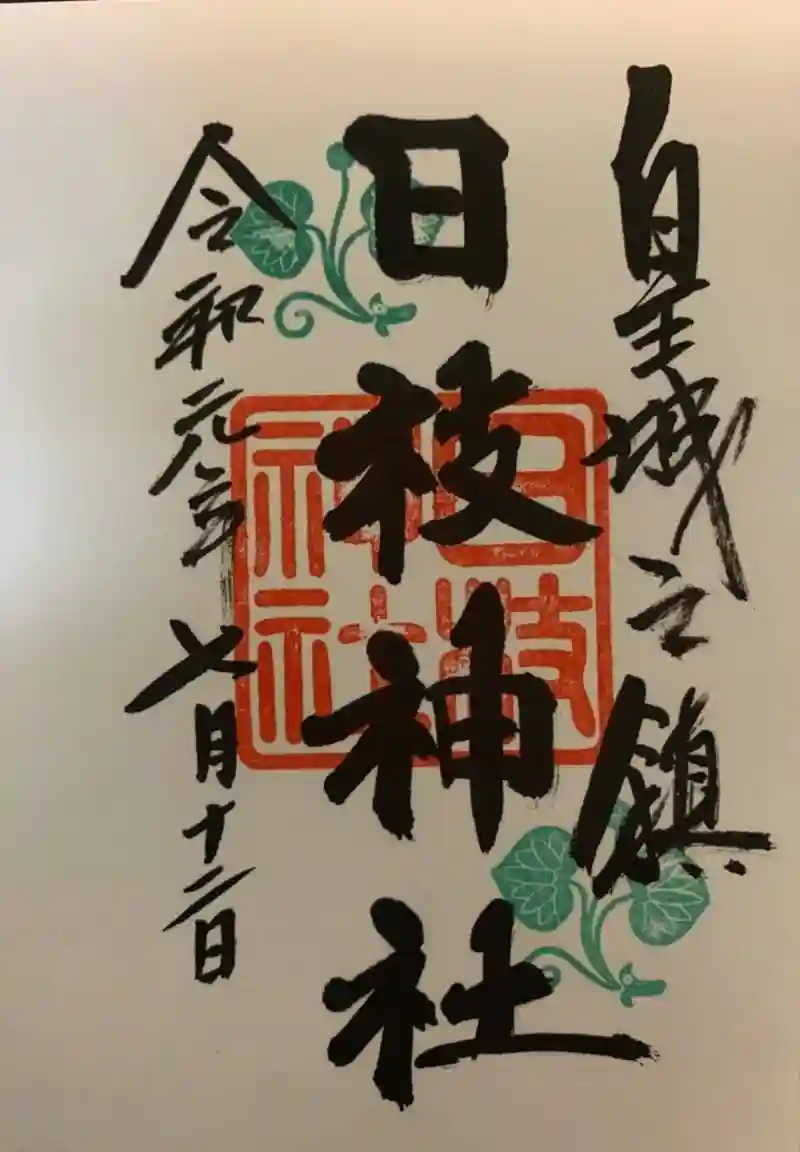 皇城之鎮
日枝神社
令和元年七月十二日
日枝
神社